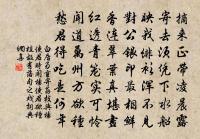 摘來正帶凌晨露
寄去須憑下水船
映我緋衫渾不見
對公銀印最相鮮
香連翠葉真堪畫
紅透青籠實可憐
聞道萬州方欲種
愁君得吃是何年
白居易重寄荔枝與楊
使君時聞楊使君欲種
植故有落句之戲